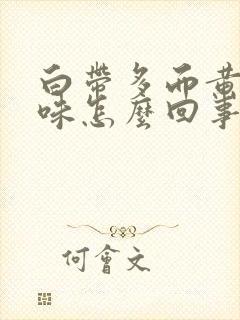 白帶多而黃
味怎麼回事
何會文